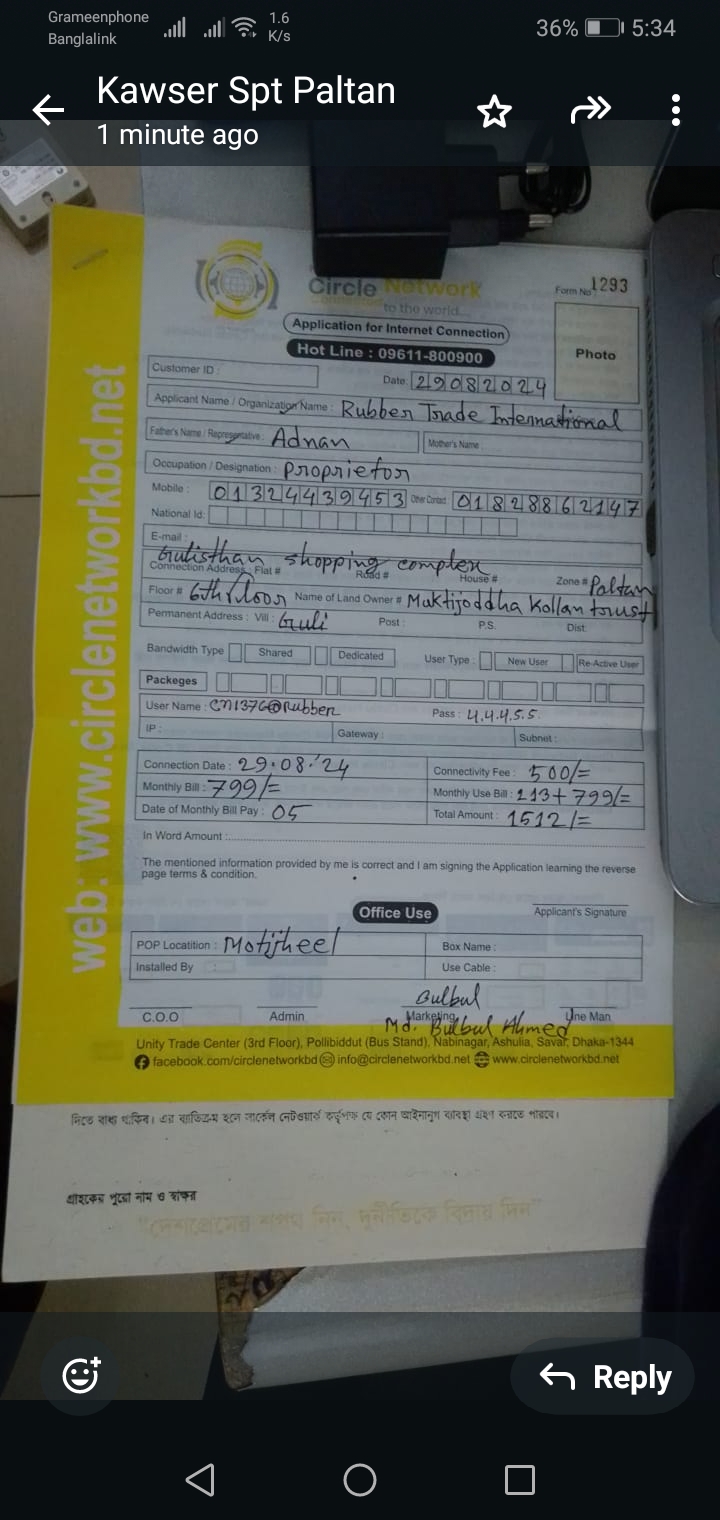 Grameenphone
Banglalink
1.6
K/s
36% 5:34
Kawser Spt Paltan
1 minute ago
Circle Network
to the world...
Form No 1293
Application for Internet Connection
Hot Line : 09611-800900
Photo
Customer ID :
Date: 29082024
Applicant Name / Organization Name : Rubber Trade International
Father's Name / Representative : Adnan Mother's Name :
Occupation / Designation : Proprietor
Mobile : 01324439453 Other Contact 01828862147
National Id:
E-mail :
Gulisthan shopping complex
Connection Address : Flat # Road # House # Zone # Paltan
Floor # 6th floor Name of Land Owner # Muktijoddha Kollan trust
Permanent Address : Vill : Guli Post : P.S. Dist.
Bandwidth Type Shared Dedicated User Type : New User Re-Active User
Packeges
User Name : CN1376@Rubber Pass : 4.4.4.5.5.
IP : Gateway : Subnet :
Connection Date : 29.08.'24 Connectivity Fee : 500/=
Monthly Bill : 799/= Monthly Use Bill : 213+799/=
Date of Monthly Bill Pay : 05 Total Amount : 1512/=
In Word Amount :
The mentioned information provided by me is correct and I am signing the Application learning the reverse
page terms & condition.
Office Use
Applicant's Signature
POP Locatition : Motijheel Box Name :
Installed By : Use Cable :
Bulbul
C.O.O Admin Marketing Line Man
Md. Bulbul Ahmed
Unity Trade Center (3rd Floor), Pollibiddut (Bus Stand), Nabinagar, Ashulia, Savar, Dhaka-1344
facebook.com/circlenetworkbd info@circlenetworkbd.net www.circlenetworkbd.net
web: www.circlenetworkbd.net
দিতে বাধ্য থাকিব। এর ব্যতিক্রম হলে সার্কেল নেটওয়ার্ক কর্তৃপক্ষ যে কোন আইনানুগ ব্যবস্থা গ্রহণ করতে পারবে।
গ্রাহকের পুরো নাম ও স্বাক্ষর
"দেশপ্রেমের শপথ নিন, দুর্নীতিকে বিদায় দিন"
Reply